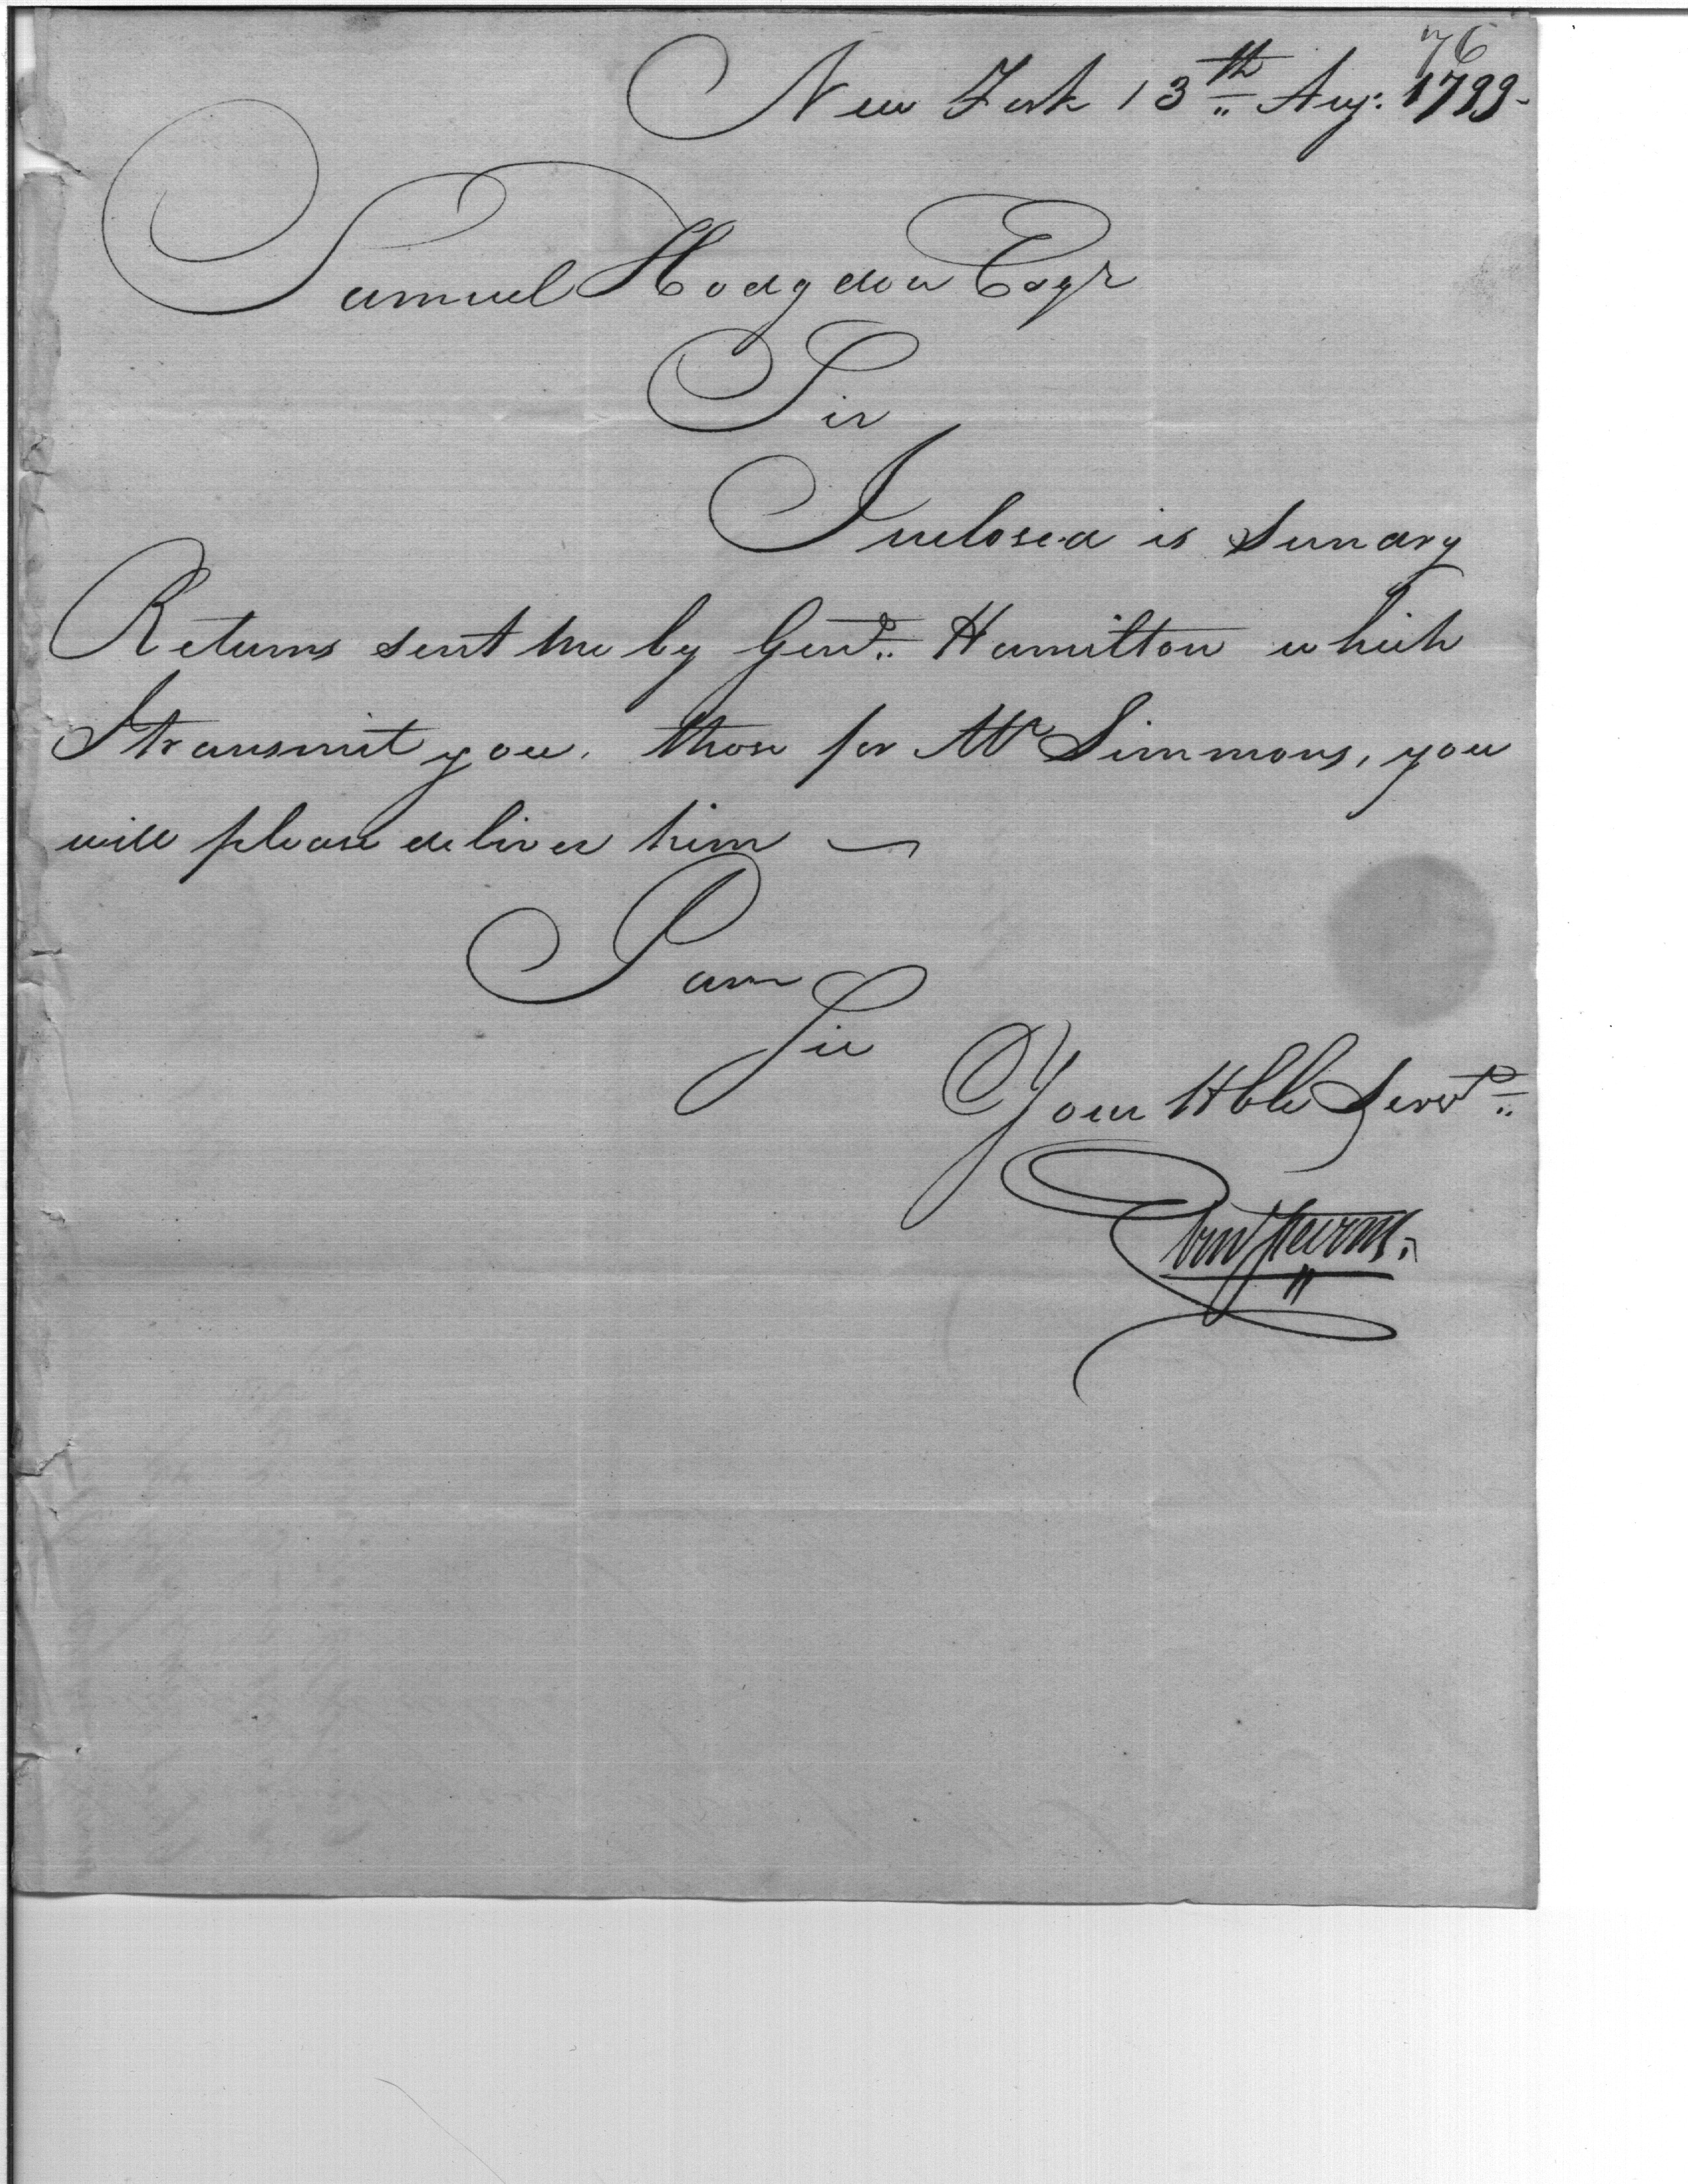 76
New York 13th Aug: 1799-
Samuel Hodgdon Esqr
Sir
Inclosed is Sundry
Returns sent me by Genl. Hamilton which
I transmit you. those for Mr Simmons, you
will please deliver him —
I am
Sir
Your Hble Servt.